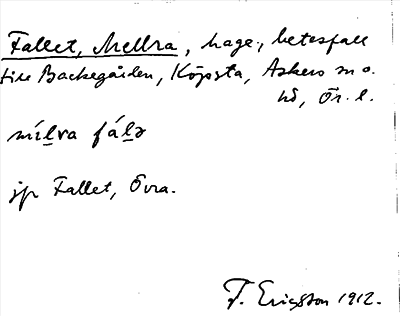 Fallet, Mellra, hage, betesfall
till Backegården, Köpsta, Askers sn o.
hd, Ör. l.
mílva fálə
jfr Fallet, Övra.
T. Ericsson 1912.